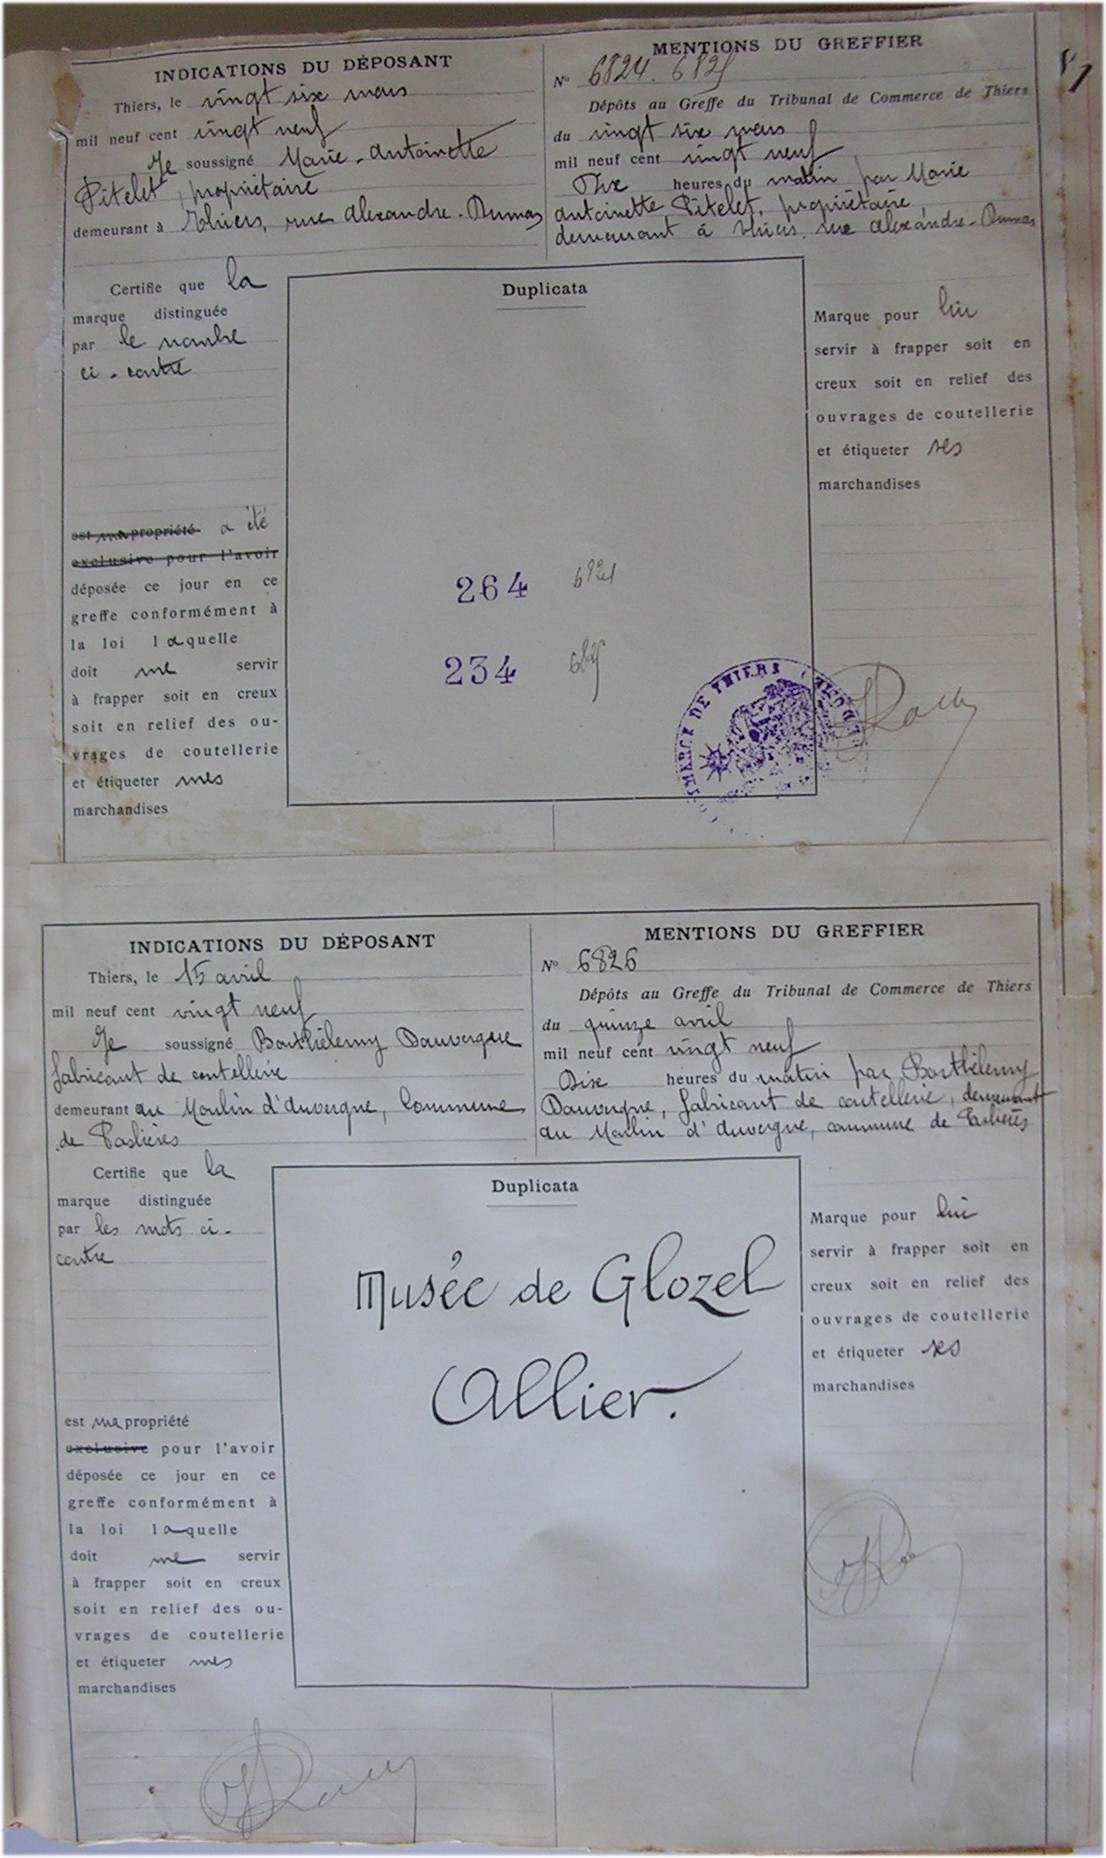 INDICATIONS DU DÉPOSANT
Thiers, le vingt six mars
mil neuf cent vingt neuf
Je soussigné Marie-Antoinette
Pitelet, propriétaire
demeurant à Thiers, rue Alexandre-Dumas
MENTIONS DU GREFFIER
No 6824. 6825
Dépôts au Greffe du Tribunal de Commerce de Thiers
du vingt six mars
mil neuf cent vingt neuf
Dix heures du matin par Marie
Antoinette Pitelet, propriétaire,
demeurant à Thiers, rue Alexandre-Dumas
Certifie que la
marque distinguée
par le nombre
ci-contre
est ma propriété a été
exclusive pour l'avoir
déposée ce jour en ce
greffe conformément à
la loi laquelle
doit me servir
à frapper soit en creux
soit en relief des ou-
vrages de coutellerie
et étiqueter mes
marchandises
Duplicata
264 6824
234 6825
MERCE DE THIERS
Marque pour lui
servir à frapper soit en
creux soit en relief des
ouvrages de coutellerie
et étiqueter ses
marchandises
INDICATIONS DU DÉPOSANT
Thiers, le 15 avril
mil neuf cent vingt neuf
Je soussigné Barthélemy Dauvergne
fabricant de coutellerie
demeurant au Moulin d'Auvergne, Commune
de Paslières
MENTIONS DU GREFFIER
No 6826
Dépôts au Greffe du Tribunal de Commerce de Thiers
du quinze avril
mil neuf cent vingt neuf
Dix heures du matin par Barthélemy
Dauvergne, fabricant de coutellerie, demeurant
au Moulin d'Auvergne, commune de Paslières
Certifie que la
marque distinguée
par les mots ci-
contre
est ma propriété
exclusive pour l'avoir
déposée ce jour en ce
greffe conformément à
la loi laquelle
doit me servir
à frapper soit en creux
soit en relief des ou-
vrages de coutellerie
et étiqueter mes
marchandises
Duplicata
Musée de Glozel
Allier.
Marque pour lui
servir à frapper soit en
creux soit en relief des
ouvrages de coutellerie
et étiqueter ses
marchandises